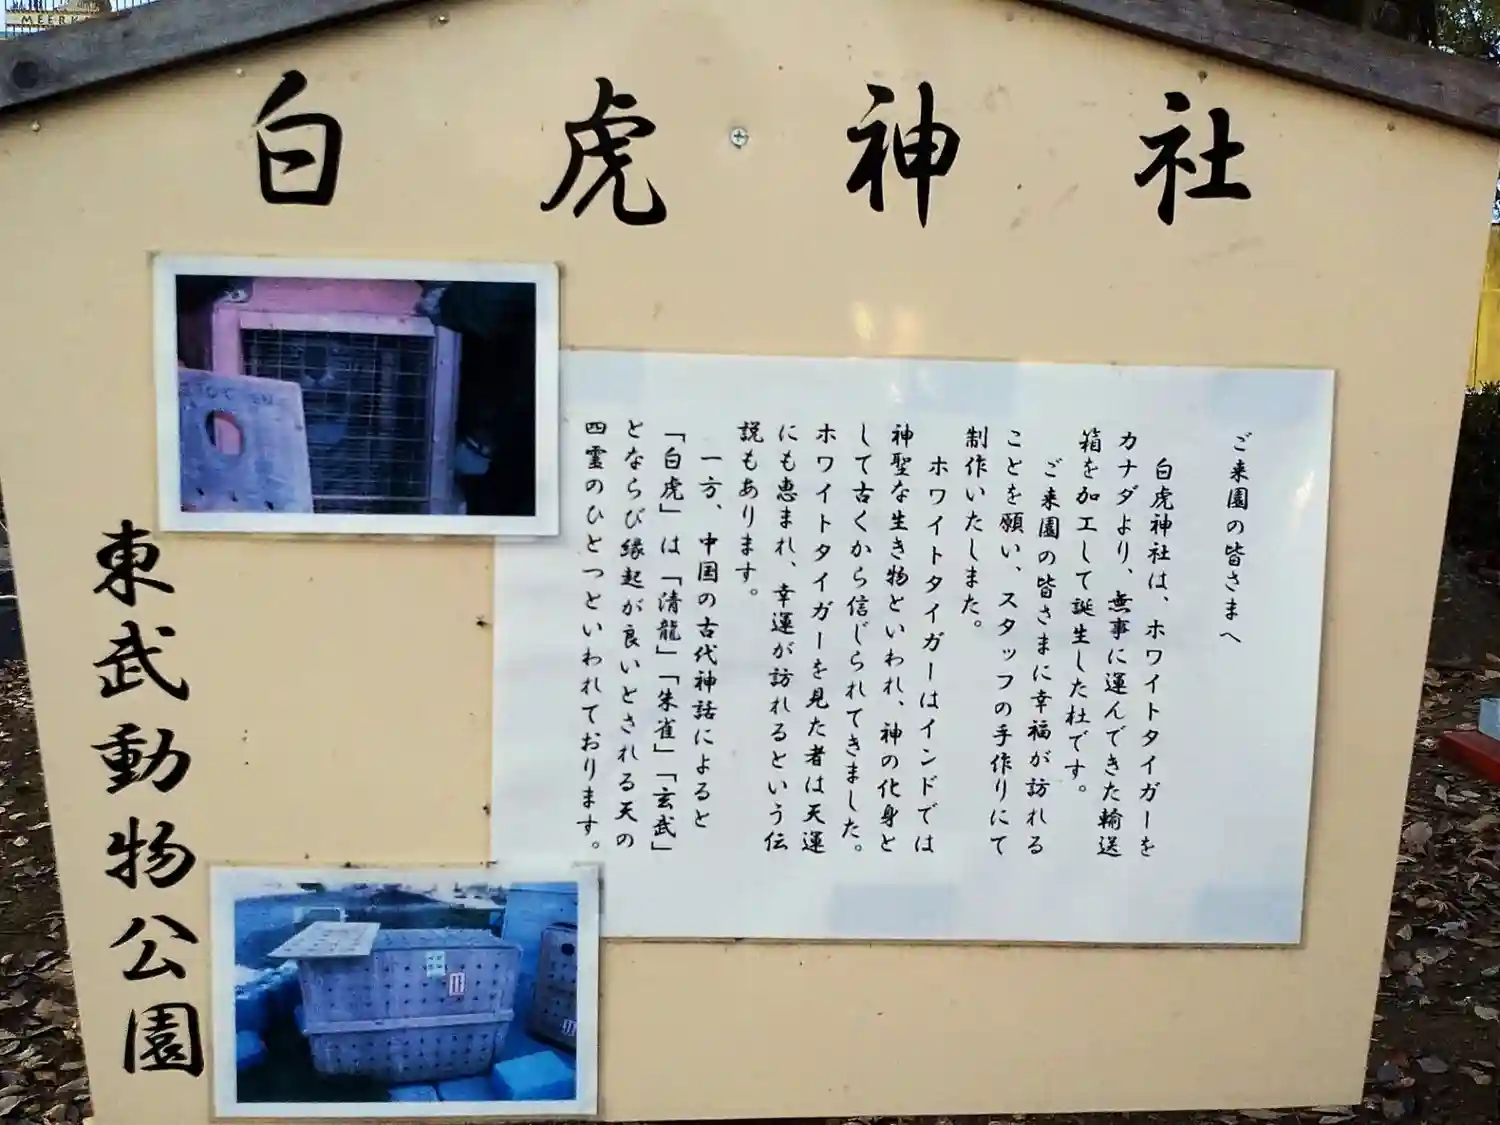 MEERK
白虎神社
ご来園の皆さまへ
白虎神社は、ホワイトタイガーを
カナダより、無事に運んできた輸送
箱を加工して誕生した社です。
ご来園の皆さまに幸福が訪れる
ことを願い、スタッフの手作りにて
制作いたしました。
ホワイトタイガーはインドでは
神聖な生き物といわれ、神の化身と
して古くから信じられてきました。
ホワイトタイガーを見た者は天運
にも恵まれ、幸運が訪れるという伝
説もあります。
一方、中国の古代神話によると
「白虎」は「清龍」「朱雀」「玄武」
とならび縁起が良いとされる天の
四霊のひとつといわれております。
東武動物公園